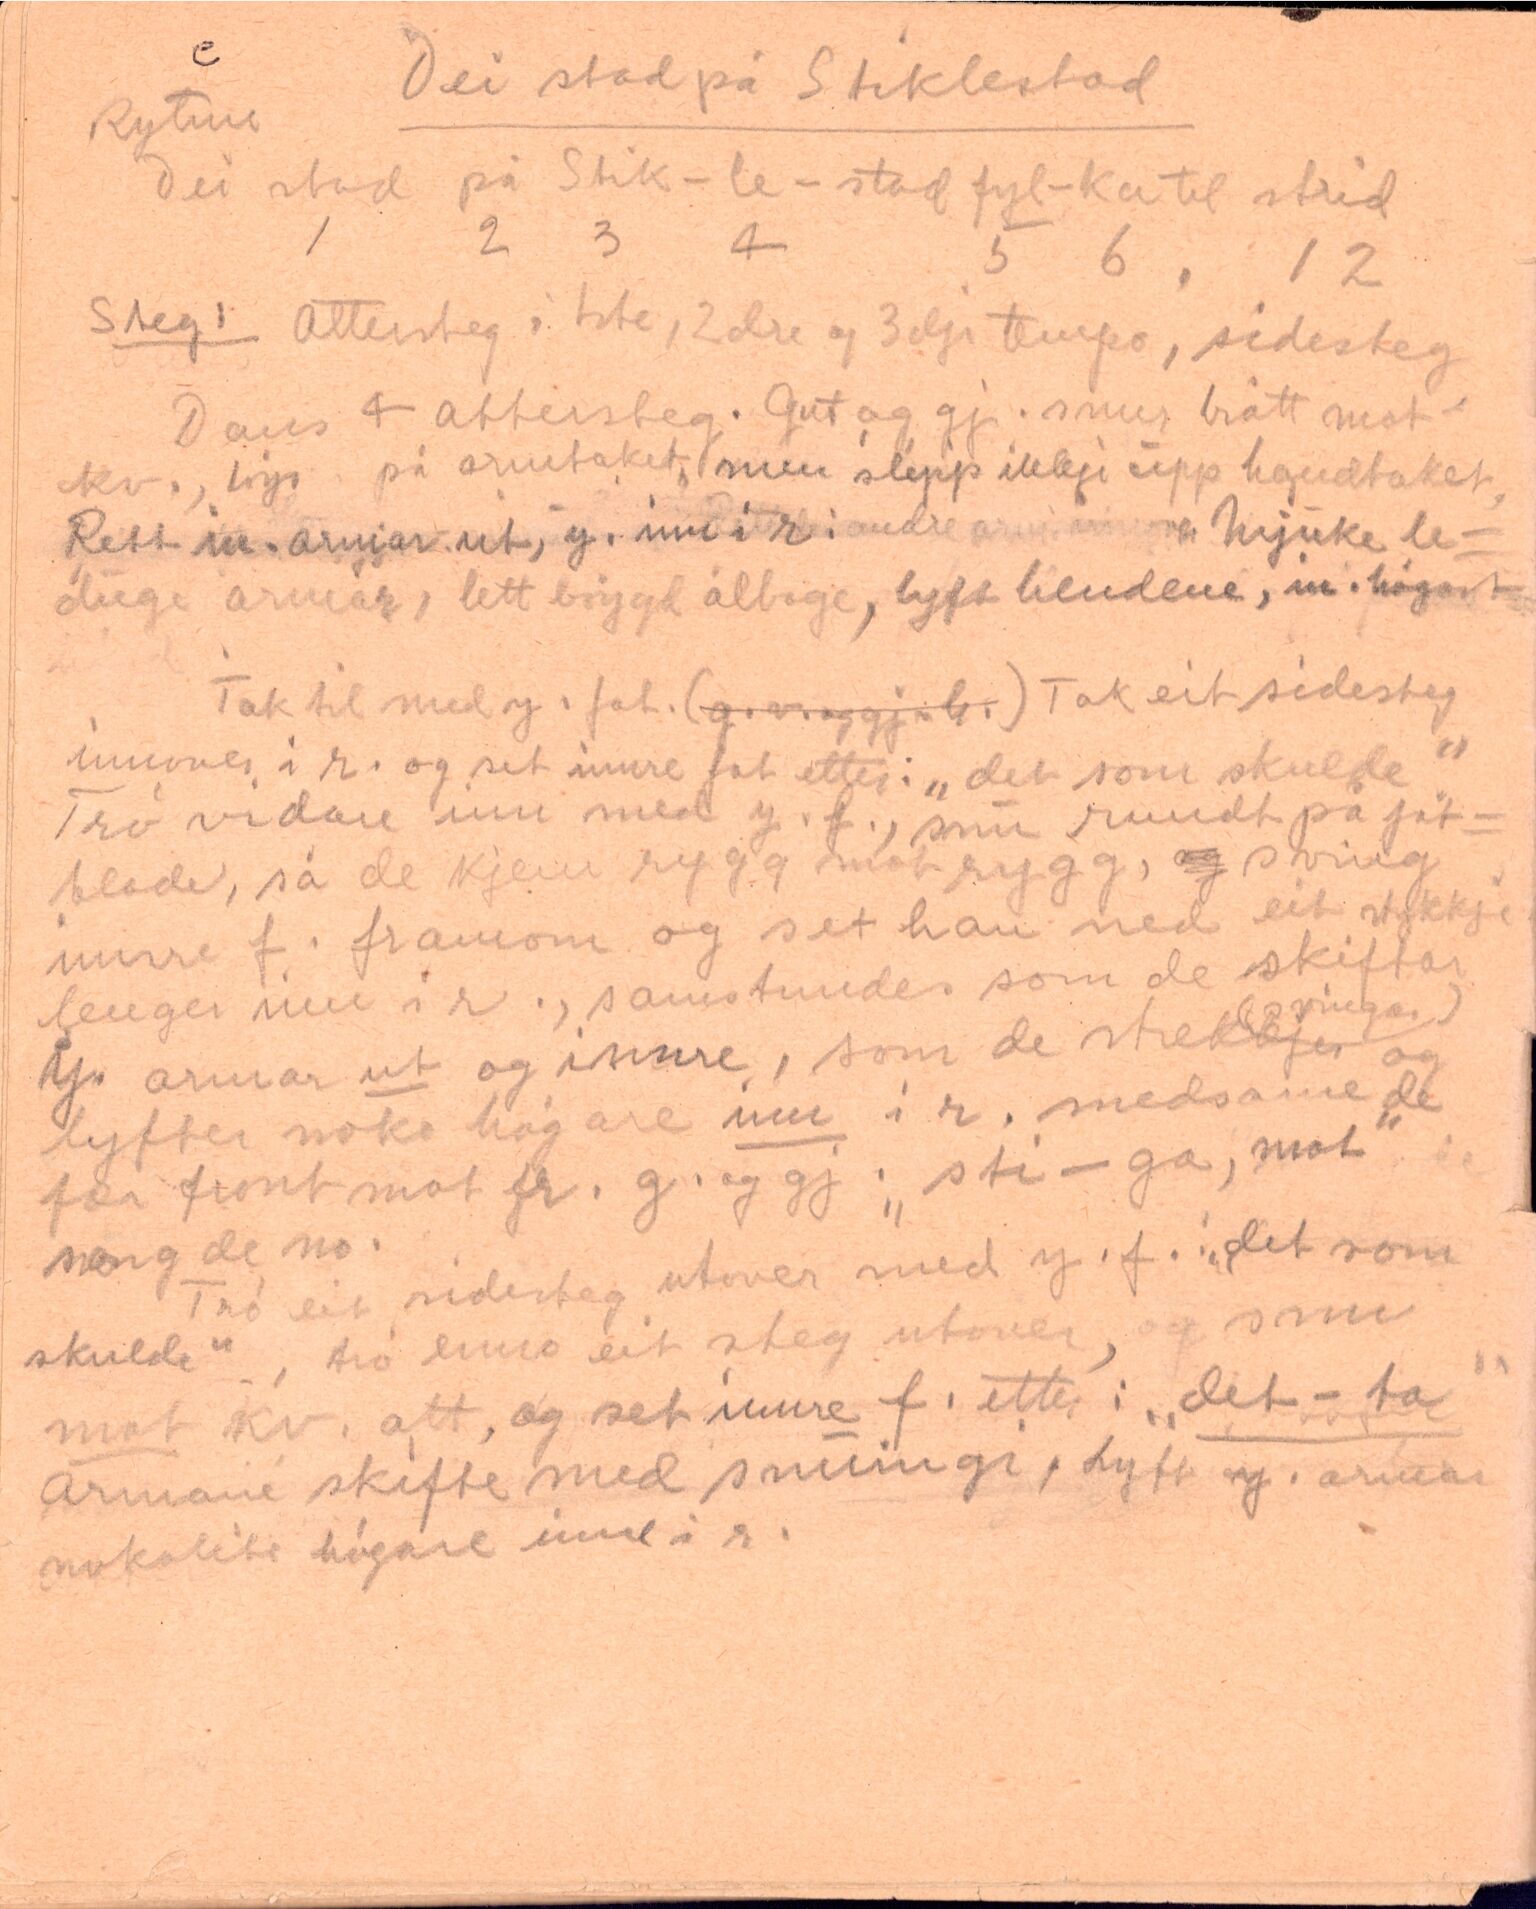 e
Dei stod på Stiklestad
Rytme
Dei stod på Stik-le-stad fyl-ka til strid
1 2 3 4 5 6, 1 2
Steg: Attersteg i 1ste, 2dre og 3dje tempo, sidesteg
Dans 4 attersteg. Gut og gj. snur brått mot
kv., løys på armtaket, men slepp ikkje upp handtaket,
Rett in. armar ut, y. inn i r. Mjuke le-
duge armar, lett bøygd ålboge, lyft hendene, in. høgast
Tak til med y. fot. (g. v. og gj. h.) Tak eit sidesteg
innover i r. og set inure fot etter: „det som skulde"
Trø vidare inn med y. f., snu rundt på fot-
blade, så de kjem rygg mot rygg, og sving
inure f. framom og set han ned eit stykkje
lenger inn i r., samstundes som de skiftar
(svingar)
y. armar ut og inure, som de strekkjer og
lyfter noko høgare inn i r. medsame de
fær front mot fr. g. og gj.: „sti-ga, mot"
song de no.
Trø eit sidesteg utover med y. f.: „det som
skulde", trø enno eit steg utover, og snu
mot kv. att, og set inure f. etter: „det-ta"
Armane skifte med snuingi, lyft y. armar
nokolite høgare inn i r.